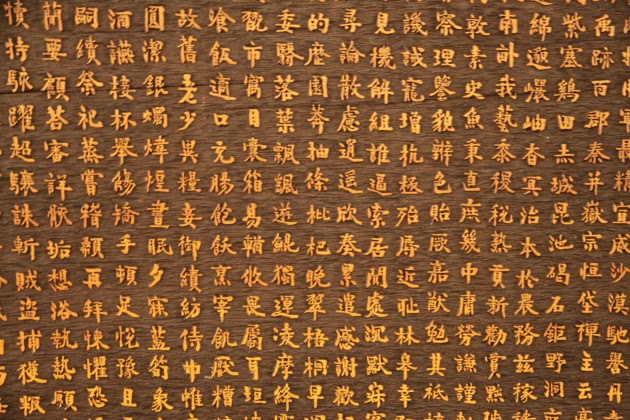 軍最精宣威沙漠馳譽丹
禹跡百郡秦并嶽宗恒岱禪主云
紫塞鷄田赤城昆池碣石鉅野洞
綿邈巖岫杳冥治本於農務茲稼
南畝我藝黍稷稅熟貢新勸賞黜
敦素史魚秉直庶幾中庸勞謙謹
察理鑒貌辯色貽厥嘉猷勉其祗
譏誡寵增抗極殆辱近恥林皋幸
見機解組誰逼索居閒處沉默寂
尋論散慮逍遙欣奏累遣感謝歡
的歷園莽抽條枇杷晚翠梧桐早
委翳落葉飄颻遊鯤獨運凌摩絳
翫市寓目囊箱易輶攸畏屬耳垣
飡飯適口充腸飽飫烹宰飢厭糟
故舊老少異糧妾御績紡侍巾帷
圓潔銀燭煒煌晝眠夕寐藍筍象
酒讌接杯舉觴矯手頓足悅豫且
嗣續祭祀蒸嘗稽顙再拜悚懼恐
簡要顧答審詳骸垢想浴執熱願
犢特駭躍超驤誅斬賊盜捕獲叛